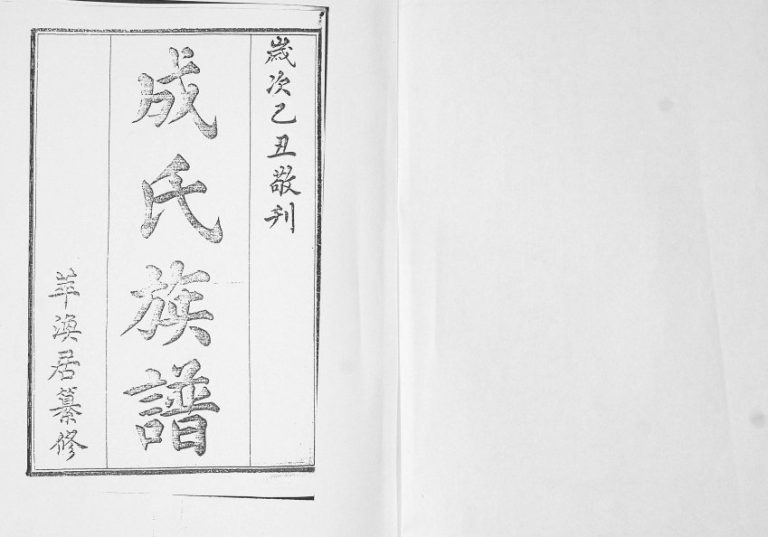 歲次乙丑敬刊
成氏族譜
羊渙居纂修